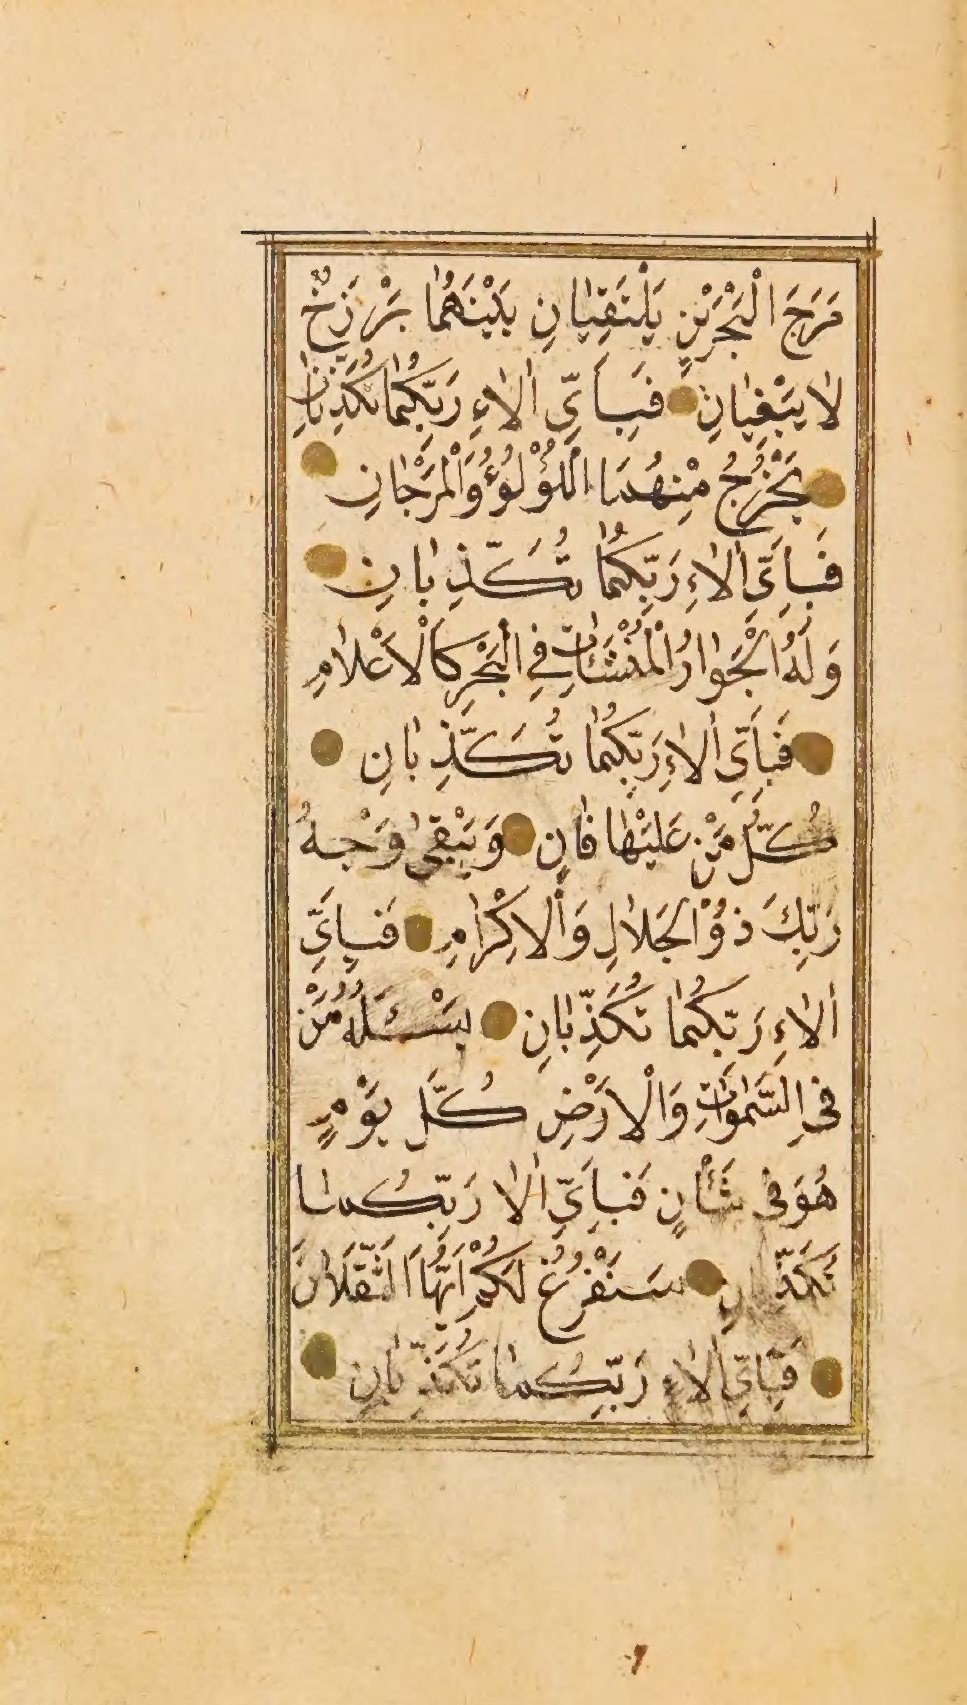 مَرَجَ الْبَحْرَيْنِ يَلْتَقِيَانِ بَيْنَهُمَا بَرْزَخٌ
لَا يَبْغِيَانِ فَبِاَىِّ اٰلَاءِ رَبِّكُمَا تُكَذِّبَانِ
يَخْرُجُ مِنْهُمَا اللُّؤْلُؤُ وَالْمَرْجَانِ
فَبِاَىِّ اٰلَاءِ رَبِّكُمَا تُكَذِّبَانِ
وَلَهُ الْجَوَارُ الْمُنْشَئَاتُ فِي الْبَحْرِ كَالْاَعْلَامِ
فَبِاَىِّ اٰلَاءِ رَبِّكُمَا تُكَذِّبَانِ
كُلُّ مَنْ عَلَيْهَا فَانٍ وَيَبْقٰى وَجْهُ
رَبِّكَ ذُوْ الْجَلَالِ وَالْاِكْرَامِ فَبِاَىِّ
اٰلَاءِ رَبِّكُمَا تُكَذِّبَانِ يَسْئَلُهُ مَنْ
فِى السَّمٰوَاتِ وَالْاَرْضِ كُلَّ يَوْمٍ
هُوَ فِى شَأْنٍ فَبِاَىِّ اٰلَا رَبِّكُمَا
تُكَذِّبَانِ سَنَفْرُغُ لَكُمْ اَيُّهَا الثَّقَلَانِ
فَبِاَىِّ اٰلَاءِ رَبِّكُمَا تُكَذِّبَانِ